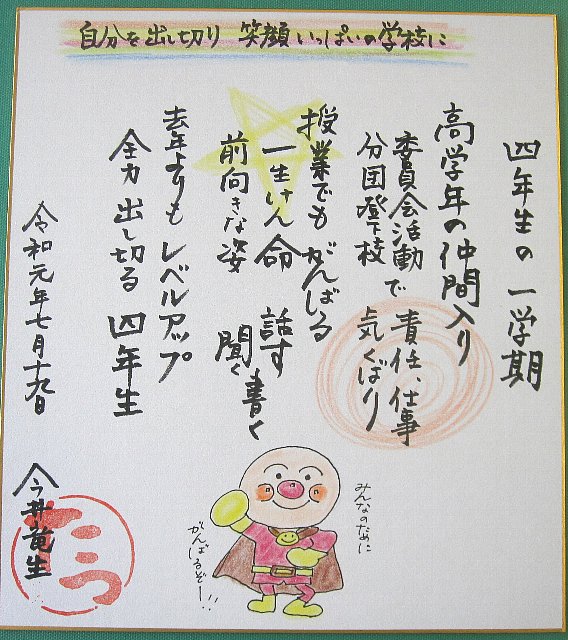 自分を出し切り 笑顔いっぱいの学校に
四年生の一学期
高学年の仲間入り
委員会活動で 責任、仕事
分団登下校 気くばり
授業でも がんばる
一生けん命 話す 書く
前向きな姿 聞く
去年よりも レベルアップ
全力出し切る 四年生
令和元年七月十九日
今井竜生
みんなのために
がんばるぞー!!